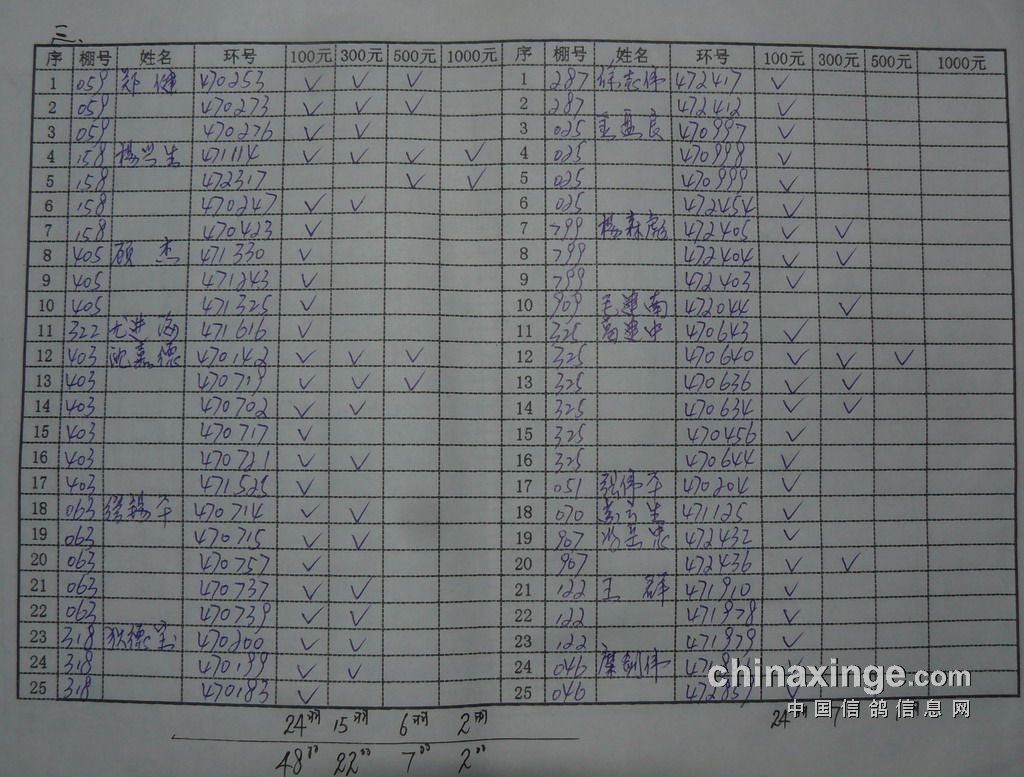 三.
序 棚号 姓名 环号 100元 300元 500元 1000元 序 棚号 姓名 环号 100元 300元 500元 1000元
1 059 郑健 470253 ✓ ✓ ✓ 1 287 徐志伟 472417 ✓
2 059 470273 ✓ ✓ ✓ 2 287 472412 ✓
3 059 470276 ✓ ✓ 3 025 470997 ✓
4 158 杨兴生 471114 ✓ ✓ ✓ ✓ 4 025 470998 ✓
5 158 472317 ✓ ✓ 5 025 470999 ✓
6 158 470247 ✓ ✓ 6 025 472454 ✓
7 158 470423 ✓ 7 799 杨森彪 472405 ✓ ✓
8 405 顾杰 471330 ✓ 8 799 472404 ✓ ✓
9 405 471243 ✓ 9 799 472403 ✓
10 405 471325 ✓ 10 909 毛建南 472044 ✓
11 322 尤进海 471616 ✓ 11 325 高建中 470643 ✓
12 403 沈嘉德 470142 ✓ ✓ ✓ 12 325 470640 ✓ ✓ ✓
13 403 470719 ✓ ✓ ✓ 13 325 470636 ✓ ✓
14 403 470702 ✓ ✓ 14 325 470634 ✓ ✓
15 403 470717 ✓ 15 325 470456 ✓
16 403 470721 ✓ ✓ 16 325 470644 ✓
17 403 471525 ✓ 17 051 张伟平 470204 ✓
18 063 470714 ✓ ✓ 18 070 471125 ✓
19 063 470715 ✓ ✓ 19 907 472432 ✓
20 063 470757 ✓ 20 907 472436 ✓ ✓
21 063 470737 ✓ ✓ 21 122 王群 471910 ✓
22 063 470739 ✓ ✓ 22 122 471978 ✓
23 318 狄德宝 470200 ✓ ✓ 23 122 471979 ✓
24 318 470199 ✓ ✓ 24 046
25 318 470183 ✓ 25 046
chinaxinge.com
中国信鸽信息网
24羽 15羽 6羽 2羽 24羽 7
48 22 7 2